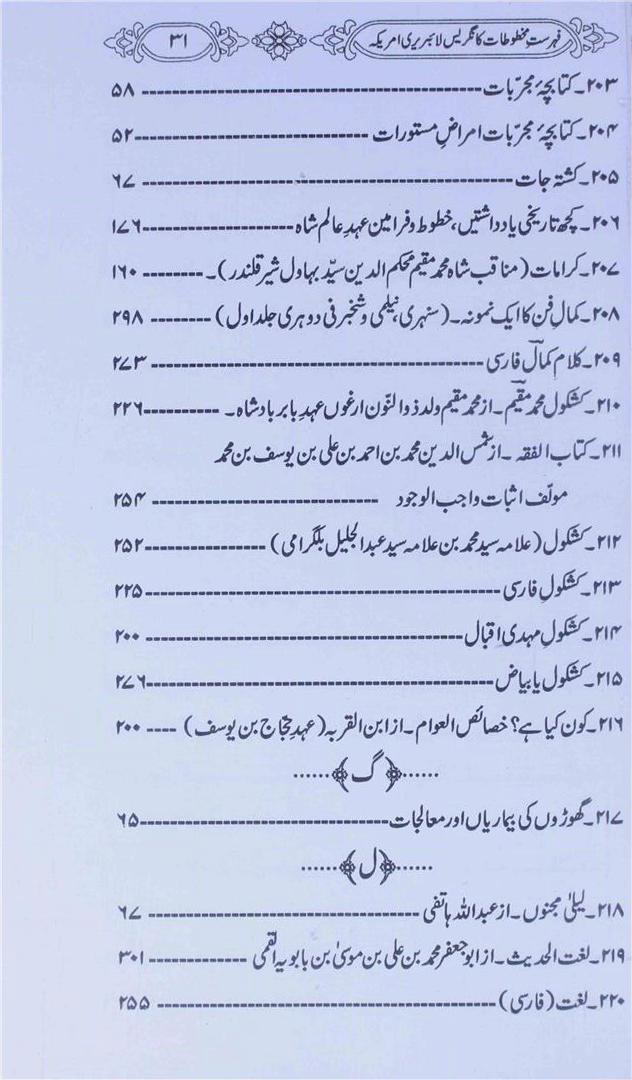 فہرست مخطوطات کانگریس لائبریری امریکہ ۳۱
۲۰۳۔ کتابچۂ مجرّبات ---------- ۵۸
۲۰۴۔ کتابچۂ مجرّبات امراضِ مستورات ---------- ۵۲
۲۰۵۔ کشتہ جات ---------- ۶۷
۲۰۶۔ کچھ تاریخی یادداشتیں، خطوط و فرامین عہدِ عالم شاہ ---------- ۱۷۶
۲۰۷۔ کرامات (مناقب شاہ محمد مقیم محکم الدین سیّد بہاول شیر قلندر)۔ ---------- ۱۶۰
۲۰۸۔ کمالِ فن کا ایک نمونہ۔ (سنہری، نیلمی و شنجرفی دوہری جلد اول) ---------- ۲۹۸
۲۰۹۔ کلام کمالؔ فارسی ---------- ۲۷۳
۲۱۰۔ کشکول محمد مقیمؔ۔ از محمد مقیم ولد ذوالنّون ارغوں عہدِ بابر بادشاہ۔ ---------- ۲۲۶
۲۱۱۔ کتاب الفقہ۔ از شمس الدین محمد بن احمد بن علی بن یوسف بن محمد
مولّف اثبات واجب الوجود ---------- ۲۵۴
۲۱۲۔ کشکول (علامہ سید محمد بن علامہ سید عبدالجلیل بلگرامی) ---------- ۲۵۲
۲۱۳۔ کشکولِ فارسی ---------- ۲۲۵
۲۱۴۔ کشکولِ مہدی اقبال ---------- ۲۰۰
۲۱۵۔ کشکول یا بیاض ---------- ۲۷۶
۲۱۶۔ کون کیا ہے؟ خصائص العوام۔ از ابن القربہ (عہدِ حجاج بن یوسف) ---- ۲۰۰
......﴿گ﴾......
۲۱۷۔ گھوڑوں کی بیماریاں اور معالجات ---------- ۶۵
......﴿ل﴾......
۲۱۸۔ لیلیٰ مجنوں۔ از عبداللہ ہاتفی ---------- ۶۷
۲۱۹۔ لغت الحدیث۔ از ابوجعفر محمد بن علی بن موسیٰ بن بابویہ القمی ---------- ۳۰۱
۲۲۰۔ لغت (فارسی) ---------- ۲۵۵